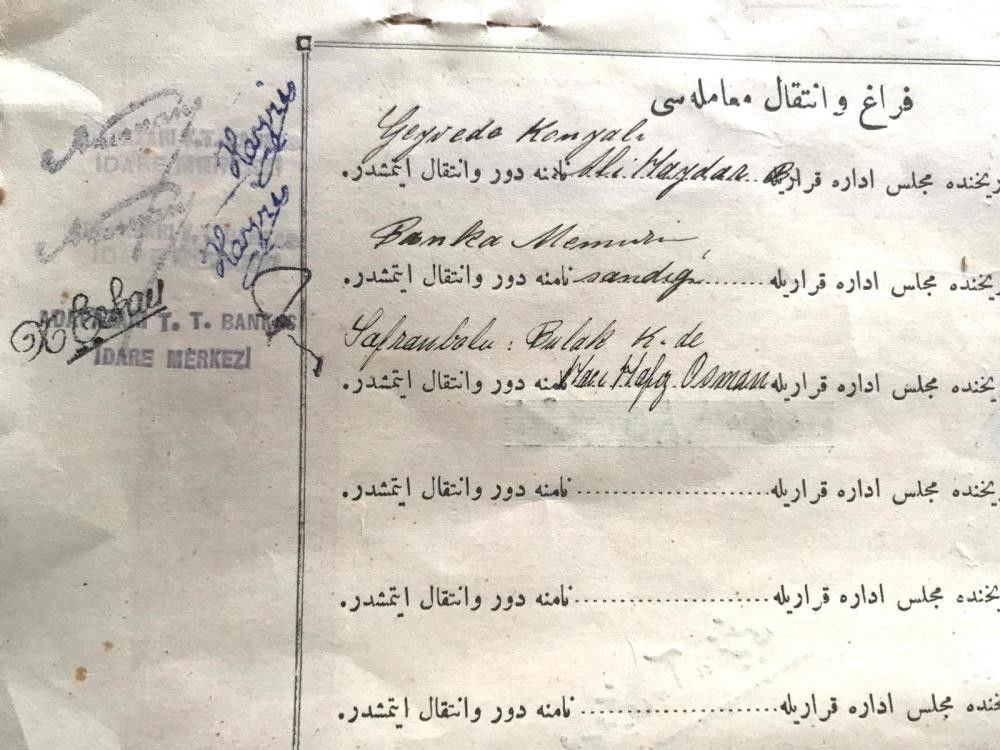 فراغ و انتقال معامله‌سی
Geyvede Konyalı
یخنده مجلس اداره قراریله Ali Haydar B. نامنه دور وانتقال ایتمشدر.
Banka Memurin
یخنده مجلس اداره قراریله........sandığı نامنه دور وانتقال ایتمشدر.
Safranbolu : Bulak K. de
یخنده مجلس اداره قراریله Hacı Hafız Osman نامنه دور وانتقال ایتمشدر.
یخنده مجلس اداره قراریله........................نامنه دور وانتقال ایتمشدر.
یخنده مجلس اداره قراریله........................نامنه دور وانتقال ایتمشدر.
یخنده مجلس اداره قراریله........................نامنه دور وانتقال ایتمشدر.
İDARE MERKEZİ
Hayri
Hayri
T. T. BANKAS
İDARE MERKEZİ